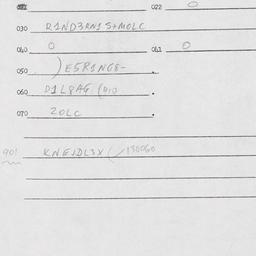 022 0
030 R1ND3RN1S+MOLC
040 0 041 0
050 )E5R1NG8-
060 D1L8AG (010
070 20LC
901 KNEJDL3X (/130060